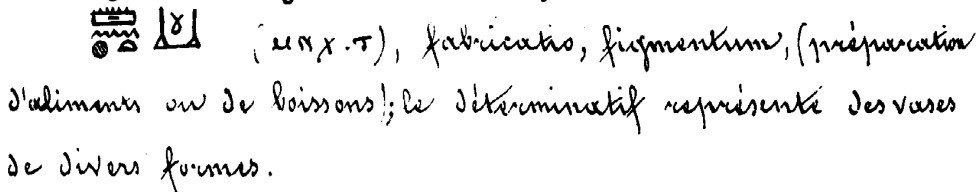 (ⲙⲛⲭ.ⲧ), fabricatio, figmentum, (préparation
d'aliments ou de boissons); le déterminatif représente des vases
de divers formes.